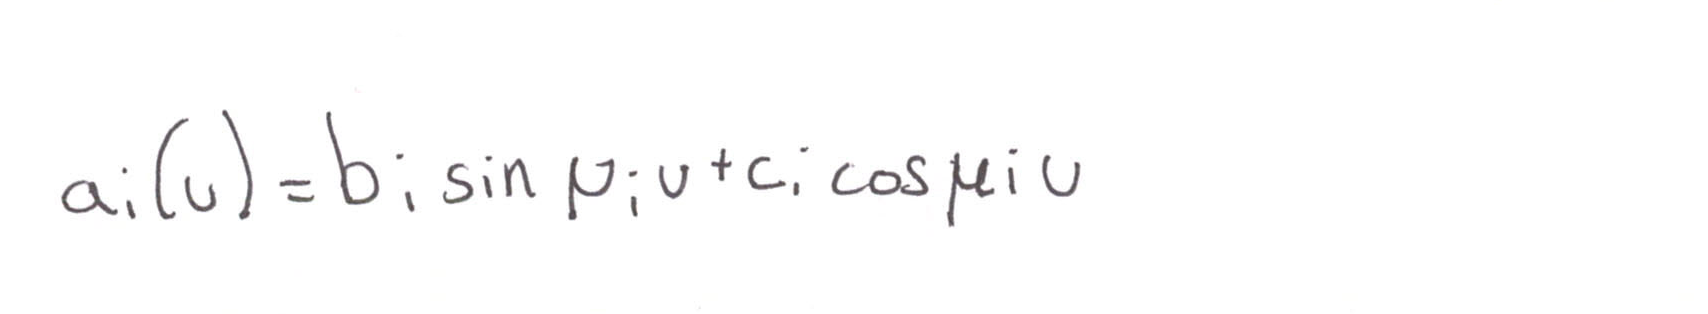 aᵢ(u) = bᵢ sin μᵢu + cᵢ cos μᵢu